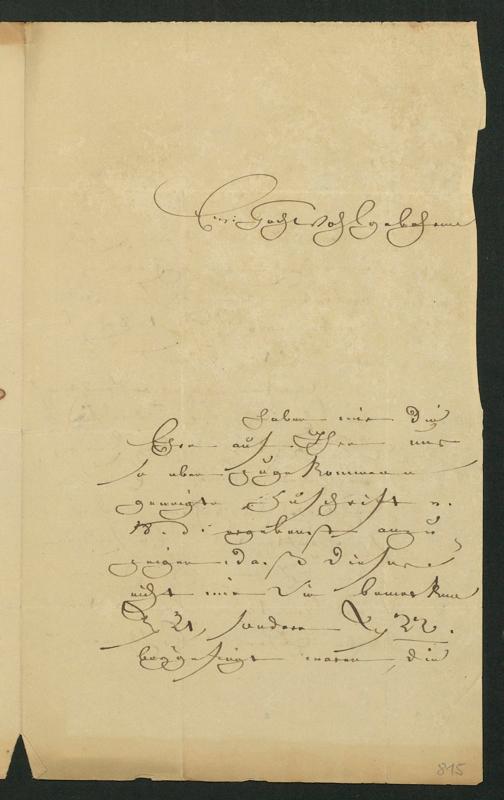 Euer Hochwohlgebohren
haben wir die
Ehre auf Ihre uns
so eben zugekommene
geneigte Zuschrift v.
18. d. ergebenst anzu-
zeigen, daß dieser
nicht wie Sie bemerken
21, sondern 22.
beygefügt waren, die
815